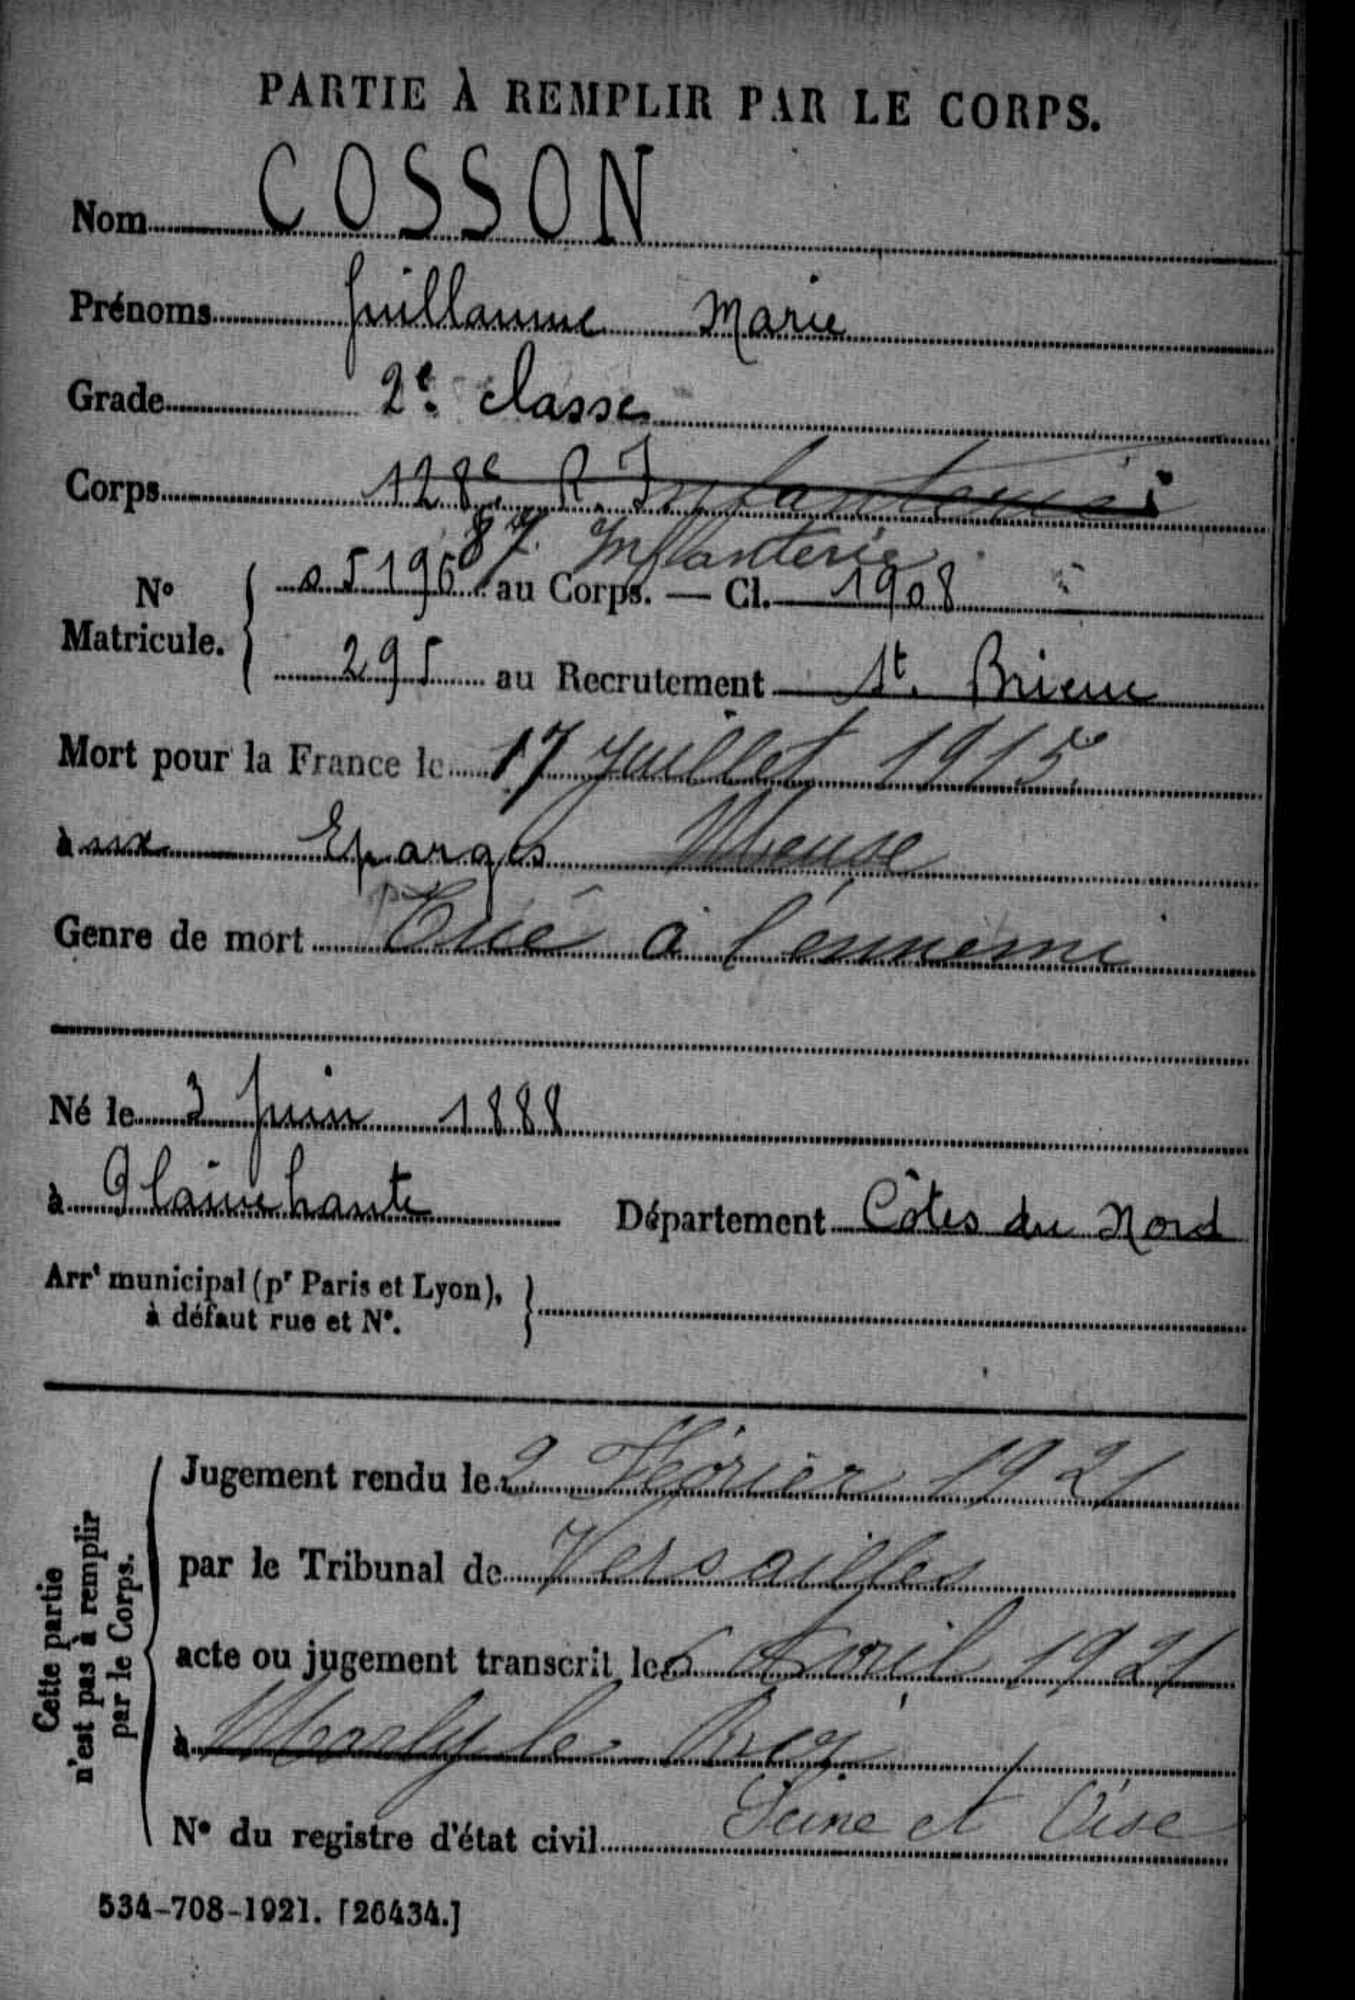 PARTIE À REMPLIR PAR LE CORPS.
Nom COSSON
Prénoms Guillaume Marie
Grade 2e classe
Corps 128e R. Infanterie
87 Infanterie
No Matricule. 05196 au Corps. — Cl. 1908
295 au Recrutement St. Brieuc
Mort pour la France le 17 Juillet 1915
aux Eparges Meuse
Genre de mort Tué à l'ennemi
Né le 3 Juin 1888
à Plainehaute Département Côtes du Nord
Arrt municipal (pr Paris et Lyon),
à défaut rue et No.
Cette partie
n'est pas à remplir
par le Corps.
Jugement rendu le 2 Février 1921
par le Tribunal de Versailles
acte ou jugement transcrit le 6 Avril 1921
à Marly le Roy
Seine et Oise
No du registre d'état civil
534-708-1921. [26434.]